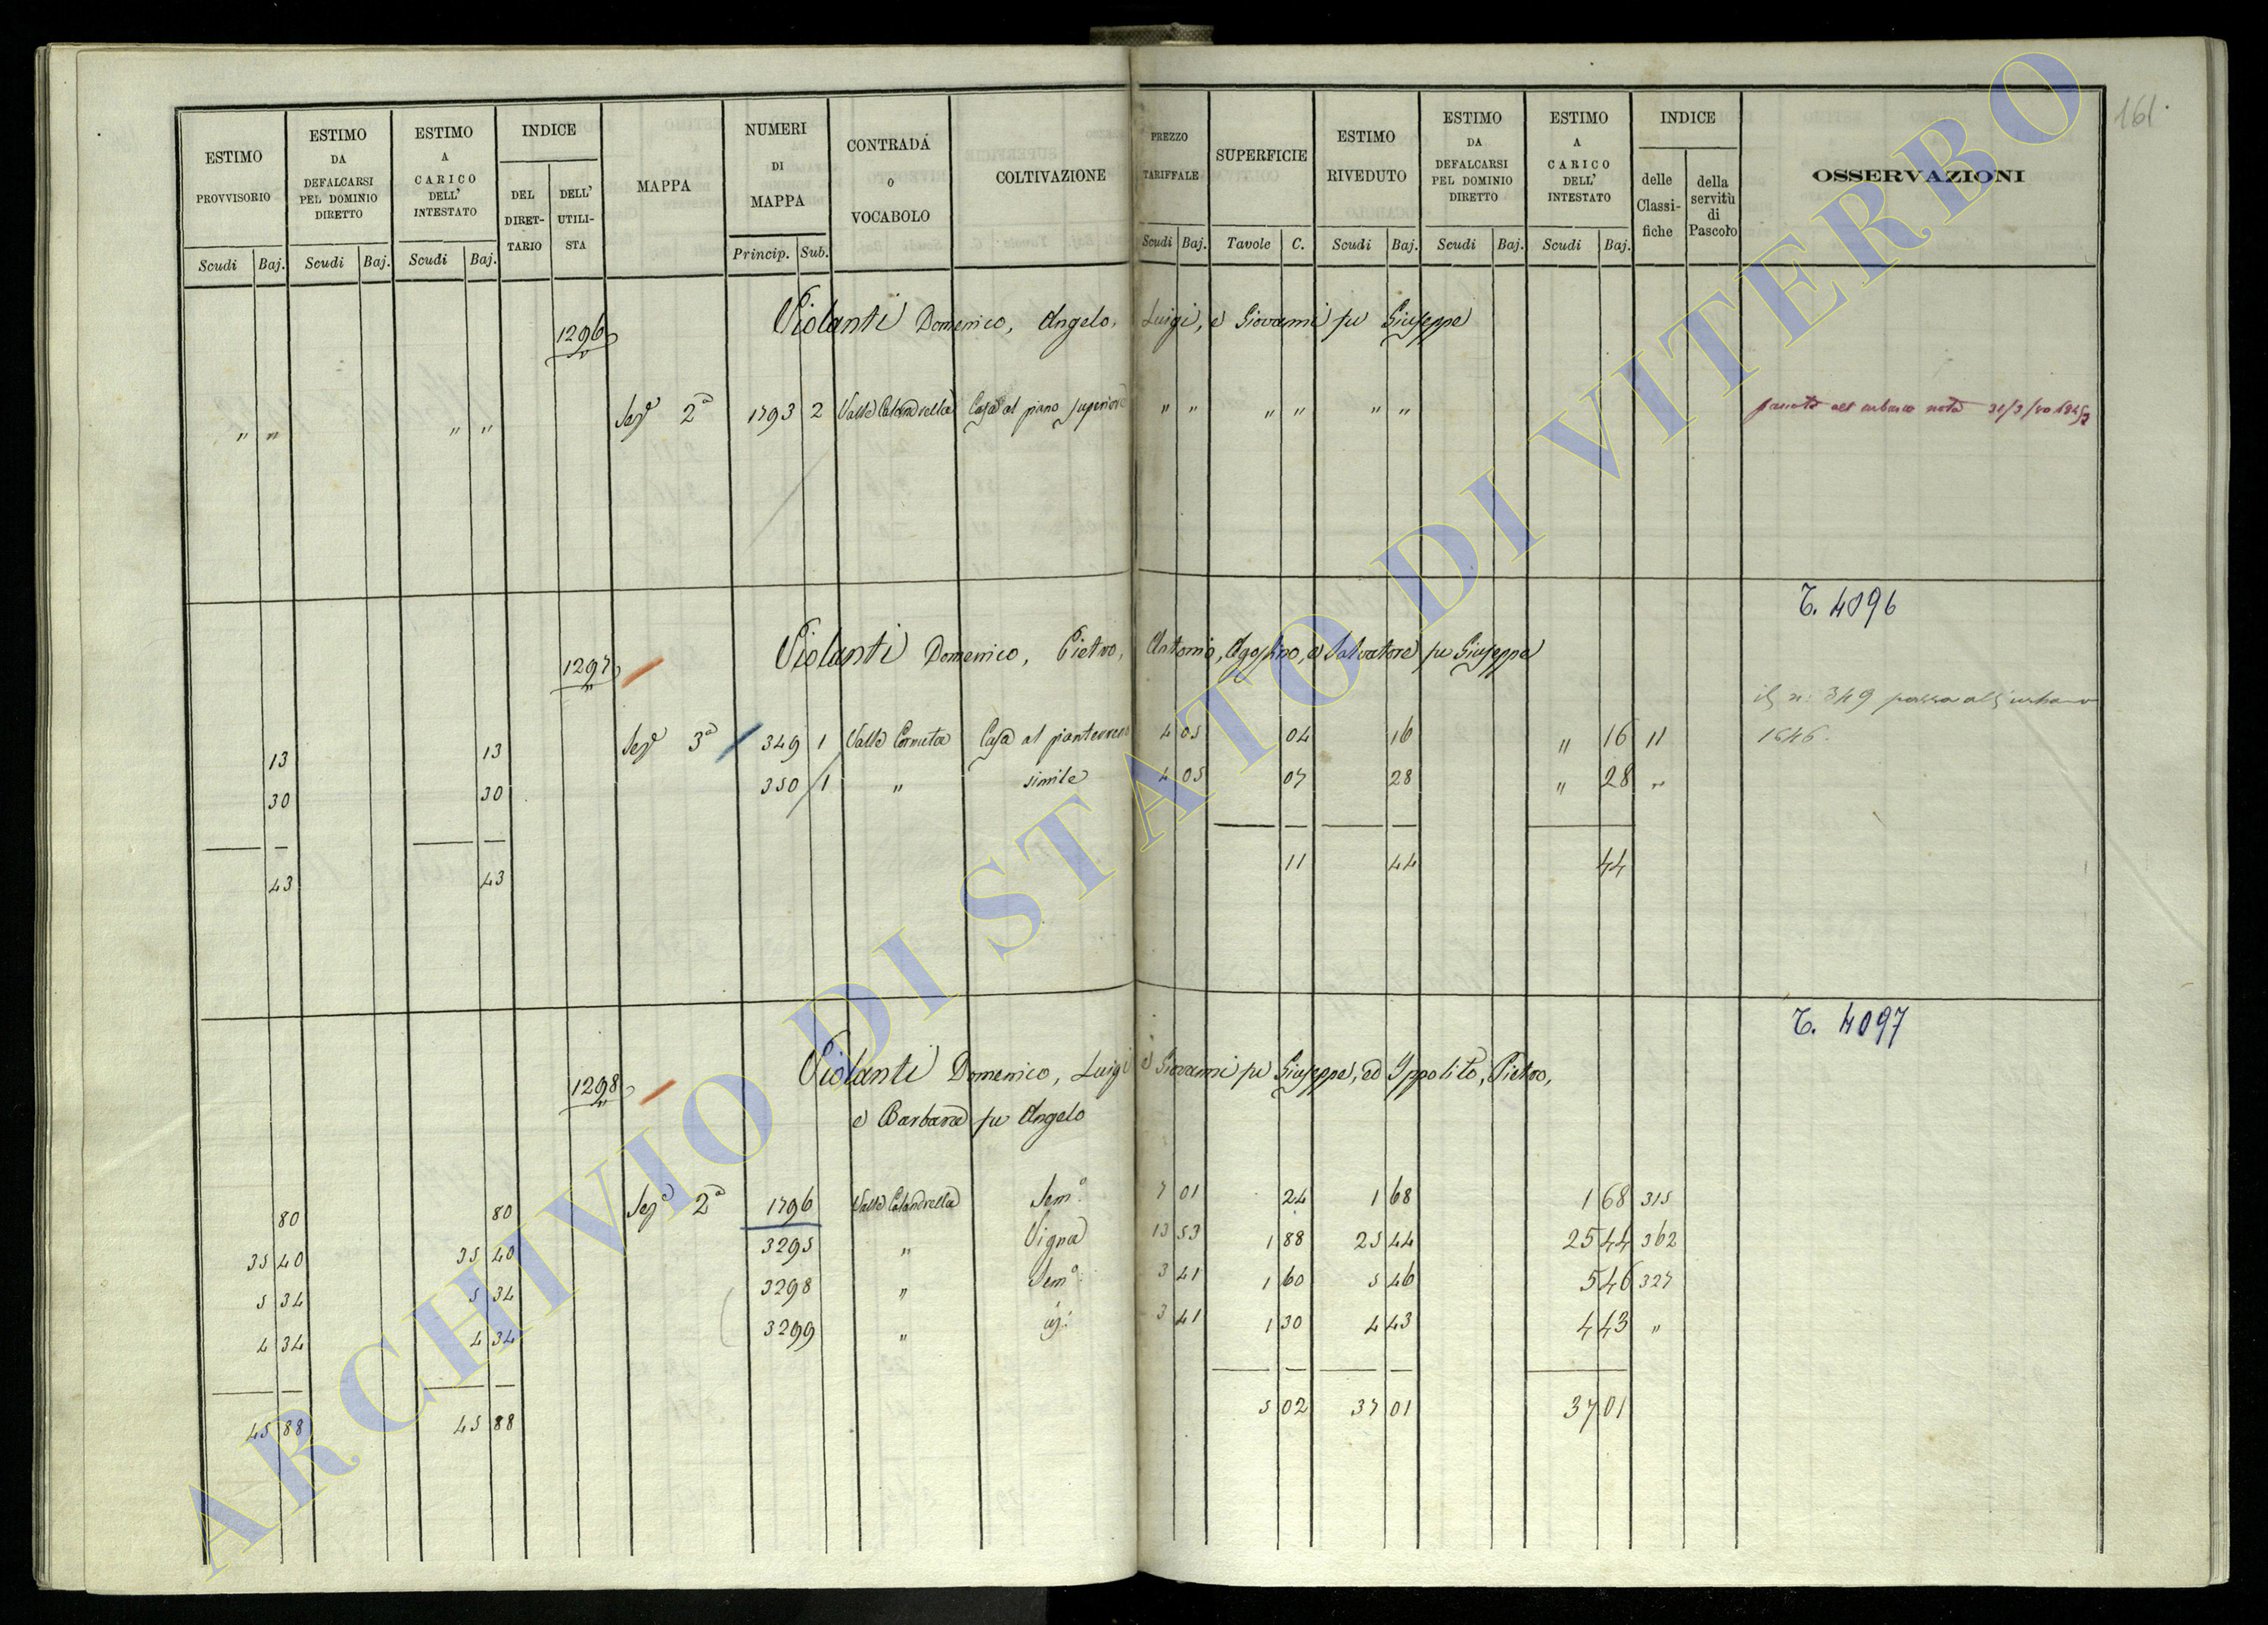 161.
ESTIMO PROVVISORIO
Scudi Baj.
ESTIMO DA DEFALCARSI PEL DOMINIO DIRETTO
Scudi Baj.
ESTIMO A CARICO DELL' INTESTATO
Scudi Baj.
INDICE
DEL DIRET-TARIO
DELL' UTILI-STA
MAPPA
NUMERI DI MAPPA
Princip. Sub.
CONTRADA O VOCABOLO
COLTIVAZIONE
PREZZO TARIFFALE
Scudi Baj.
SUPERFICIE
Tavole C.
ESTIMO RIVEDUTO
Scudi Baj.
ESTIMO DA DEFALCARSI PEL DOMINIO DIRETTO
Scudi Baj.
ESTIMO A CARICO DELL' INTESTATO
Scudi Baj.
INDICE
delle Classi-fiche
della servitù di Pascolo
OSSERVAZIONI
1296 Violanti Domenico, Angelo, Luigi, e Giovanni fu Giuseppe
" " " " Seze 2a 1793 2 Valle Calandrella Casa al piano superiore " " " " " "
T. 4096
1297 Violanti Domenico, Pietro, Antonio, Agostino, e Salvatore fu Giuseppe
il n: 349 passa all'urbano
1646.
13 13 Seze 3a 349 1 Valle Cornuta Casa al pianterreno 4 05 04 16 " 16 11
30 30 350 1 " simile 4 05 07 28 " 28 "
43 43 11 44 44
T. 4097
1298 Violanti Domenico, Luigi e Giovanni fu Giuseppe, ed Ippolito, Pietro,
e Barbara fu Angelo
80 80 Seze 2a 1796 Valle Calandrella Semo. 7 01 24 1 68 1 68 315
35 40 35 40 3295 " Vigna 13 53 1 88 25 44 25 44 362
5 34 5 34 3298 " Semo. 3 41 1 60 5 46 5 46 327
4 34 4 34 3299 " 3 41 1 30 4 43 4 43 "
45 88 45 88 5 02 37 01 37 01
ARCHIVIO DI STATO DI VITERBO